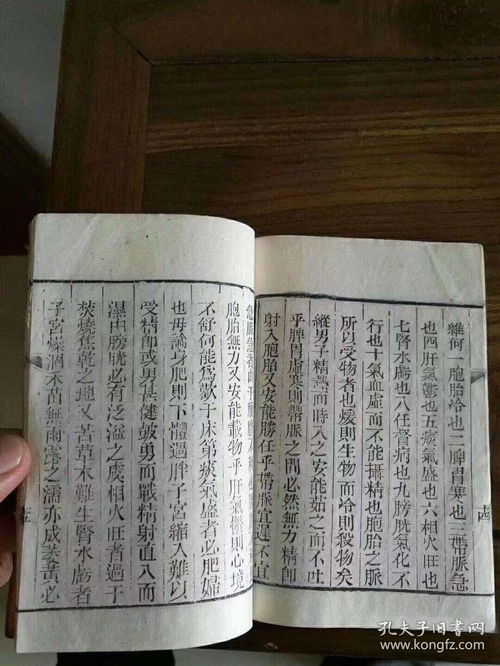 雖何一胞胎冷也二脾胃寒也三帶脈急
也四肝氣鬱也五痰氣盛也六相火旺也
七腎水虧也八任督病也九膀胱氣化不
行也十氣血虛而不能攝精也胞胎之脈
所以受物者也煖則生物而冷則殺物矣
縱男子精熱而時入之安能茹之而不吐
乎脾胃虛寒則帶脈之間必然無力精卽
射入胞胎又安能勝任乎帶脈宜遲不宜
胞胎無力又安能載物乎肝氣鬱則心境
不舒何能爲歡于床第痰氣盛者必肥婦
也毋論身肥則下體過胖子宮縮入難以
受精卽或男甚健鼓勇而戰精射直入而
濕由膀胱必有泛溢之虞相火旺者過于
焚燒焦乾之地又苦草木難生腎水虧者
子宮燥涸禾苗無雨露之濡亦成萎黃必
孔夫子旧书网
www.kongfz.com